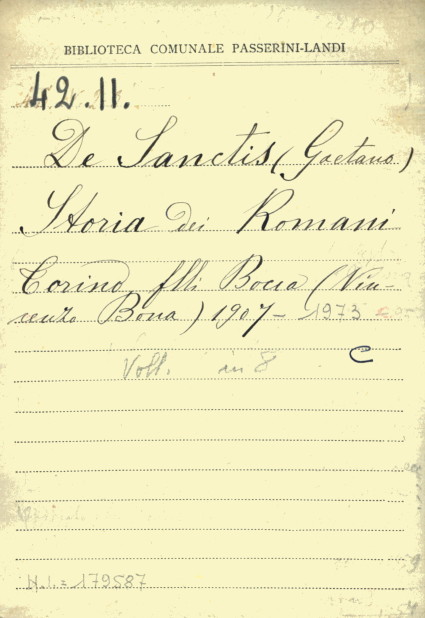 BIBLIOTECA COMUNALE PASSERINI-LANDI
42.11.
De Sanctis (Gaetano)
Storia dei Romani
Torino flli Bocca (Vin-
cenzo Bona) 1907- 1973
C
Voll. in 8
N.I.= 179587